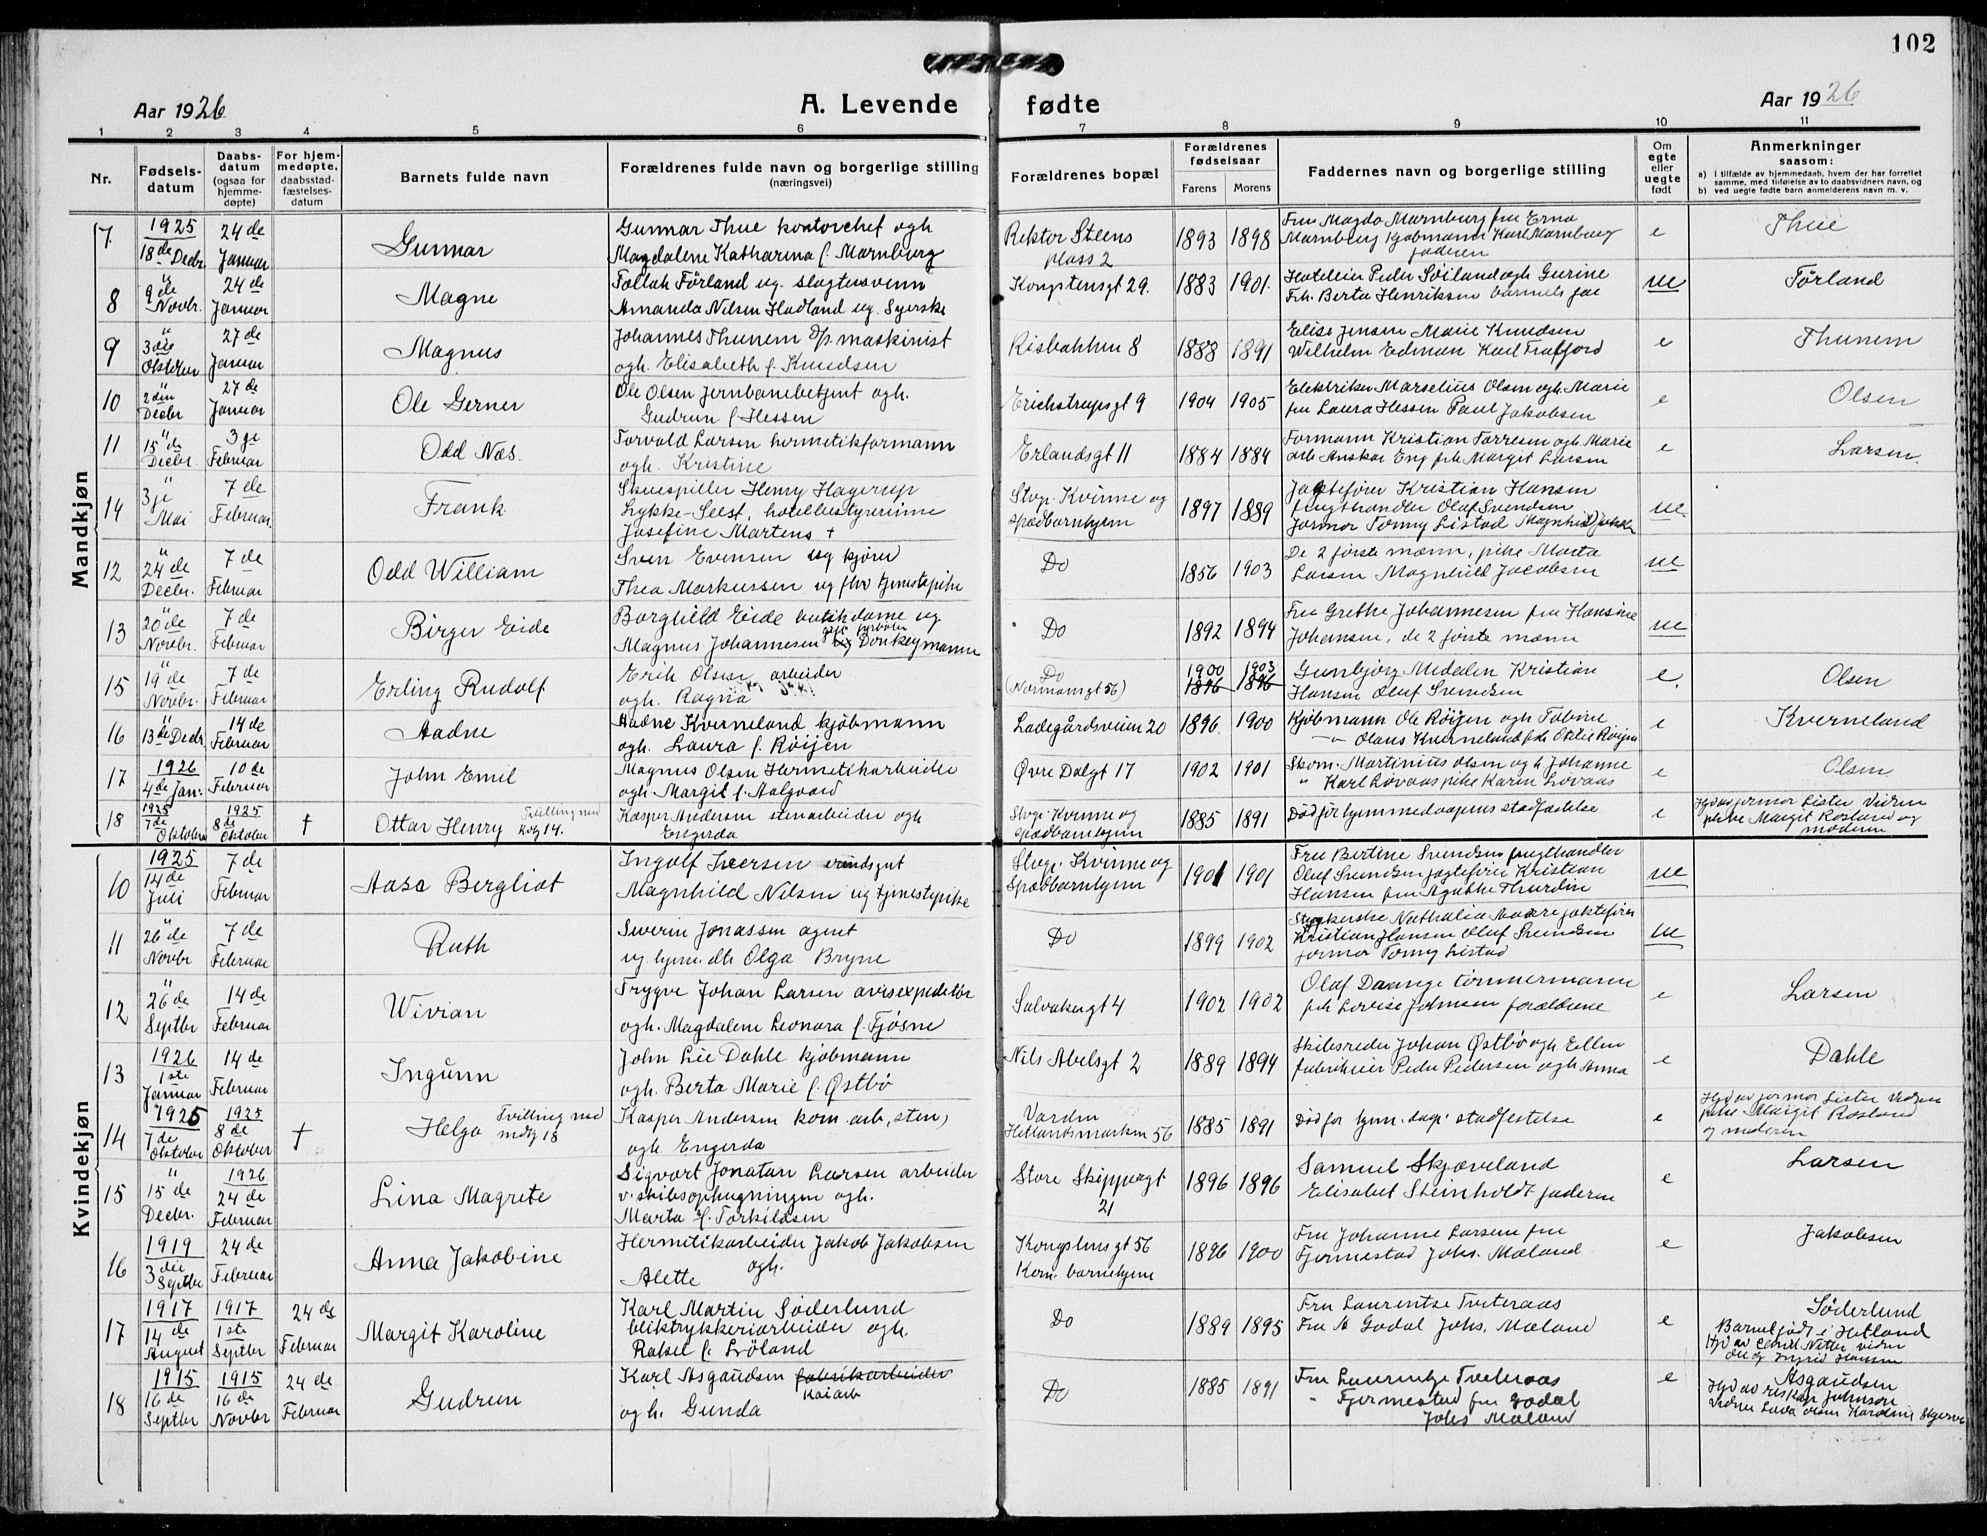 102
Aar 1926
A. Levende fødte
Aar 1926
1 2 3 4 5 6 7 8 9 10 11
Nr.
Fødsels-
datum
Daabs-
datum
(ogsaa for
hjemme-
døpte)
For hjem-
medøpte,
daabsstad-
fæstelses-
datum
Barnets fulde navn
Forældrenes fulde navn og borgerlige stilling
(næringsvei)
Forældrenes bopæl
Forældrenes
fødselsaar
Farens Morens
Faddernes navn og borgerlige stilling
Om
egte
eller
uegte
født
Anmerkninger
saasom:
a) I tilfælde av hjemmedaab, hvem der har forrettet
samme, med tilføielse av to daabsvidners navn, og
b) ved uegte fødte barn anmelderens navn m. v.
Mandkjøn
7. 1925 18de Decbr. 24de Januar Gunnar
Gunnar Thue kontorchef ogh.
Magdalene Katharina f. Marnburg
Rektor Steens
plass 2
1893 1898
Fru Magda Marnburg fru Erna
Marnburg Kjøbmann Karl Marnburg
faderen
e Thue
8 " 9de Novbr. 24de Januar Magne
Tollak Førland ug. slagtersvenn
Amanda Nilsen Hadland ug. Syerske
Kongstensgt 29. 1883 1901.
Hoteleier Peder Søiland ogh Gurine
Frk. Berta Henriksen barnets far
ue Førland
9 " 3die Oktober 27de Januar Magnus
Johannes Thunem d/s maskinist
ogh. Elisabeth f. Knudsen
Risbakken 8 1888 1891
Elise Jensen Marie Knudsen
Wilhelm Edman Karl Trafford
e Thunem
10 2den Decbr 27de Januar Ole Gerner
Ole Olsen Jernbanebetjent ogh.
Gudrun f Hessen
Erichstrupsgt 9 1904 1905
Elektriker Marselius Olsen ogh. Marie
fru Laura Hessen Paul Jakobsen
e Olsen
11 " 15de Decbr. 3je Februar Odd Næs.
Torvald Larsen hermetikformann
ogh. Kristine
Erlandsgt 11 1884 1884
Formann Kristian Torresen ogh. Marie
arb Anskar Eng frk Margit Larsen
e Larsen.
14 " 3je Mai 7de Februar Frank
Skuespiller Henry Hagerup
Lykke-Seest, hotellbestyrerinne
Josefine Martens +
Stvgr. Kvinne og
spædbarnhjem
1897 1889
Jagtefører Kristian Hansen
frugthandler Olaf Svendsen
Jormor Tonny Listad Magnhild Jakobs
ue.
12 " 24de Decbr. 7de Februar Odd William
Sven Evensen ug kjører
Thea Markussen ug fhv tjenestepike
Do 1856 1903
De 2 første mænn, pike Marta
Larsen Magnhild Jacobsen
ue
13 20de Novbr. 7de Februar Birger Eide
Borghild Eide butikdame ug
Magnus Johannesen gift Donkeymann
Do 1892 1894
Fru Grethe Johannesen fru Hansine
Johansen, de 2 første mænn
ue
15 " 19de Novbr. 7de Februar Erling Rudolf
Erik Olsen arbeider
ogh. Ragna
Do
(Normannsgt 56)
1900 1903
1896 1896
Gunbjørg Medalen Kristian
Hansen Oluf Svendsen
e. Olsen
16 " 13de Decbr 14de Februar Aadne
Aadne Kverneland kjøbmann
ogh. Laura f. Røijen
Ladegårdsveien 20 1896. 1900
Kjøbmann Ole Røijen ogh Tobine
" Olaus Kverneland frk Otilie Røijen
e Kverneland
17 1926 4de Jan: 10de Februar John Emil
Magnus Olsen Hermetikarbeider
ogh. Margit f. Aalgaard
Øvre Dalgt 17 1902 1901
Skom. Martinius Olsen og h. Johanne
" Karl Løvaas pike Karen Løvaas
e Olsen
18 1925 7de Oktober 1925 8de Oktober † Ottar Henry Tvilling med Kvk 14.
Kasper Andersen stenarbeider ogh
Engerda
Stvgr. Kvinne og
spædbarnhjem
1885 1891
Død før hjemmedaapens stadfæstelse
e
Hjd av jormor Lister Vidner
pike Margit Rosland og
moderen
Kvindekjøn
10 1925 14de Juli 7de Februar Aase Bergliot
Ingolf Iversen
Magnhild Nilsen ug tjenestepike
Stvgr. Kvinne og
Spædbarnhjem
1901 1901
Fru Bertine Svendsen frugthandler
Oluf Svendsen jagtefører Kristian
Hansen fru Agathe Thurdin
ue
11 " 26de Novbr 7de Februar Ruth
Severin Jonassen agent
ug hjem. dtr Olga Bryne
Do 1899 1902
Nathalia jaktefører
Kristian Hansen Oluf Svendsen
jormor Tonny Listad
ue
12 " 26de Septbr 14de Februar Wivian
Trygve Johan Larsen avisexpeditør
ogh. Magdalene Leonora f. Tjøsne
Solvakergt 4 1902 1902
Olaf Daange tømmermann
frk Lovise Johnsen forældrene
e Larsen
13 1926 1ste Januar 14de Februar Ingunn
John Lie Dahle kjøbmann
ogh. Berta Marie f. Østbø
Nils Abelsgt 2 1889 1894
Skibsreder Johan Østbø ogh Ellen
fabrikeier Peder Pedersen ogh Anna
e Dahle
14 1925 7de Oktober 1925 8de Oktober † Helga Tvilling med mdk 18
Kasper Andersen kom. arb, sten,
ogh. Engerda
Varden
Hetlandsmarken 56
1885 1891
Død før hjm. dap. stadfestelse
e
Hjd av jormor Lister Vidner
pike Margit Rosland
og moderen
15 " 15de Decbr. 1926 24de Februar Lina Magrete
Sigvart Jonatan Larsen arbeider
v. skibsophugningen ogh.
Marta f. Torkildsen
Store Skippergt
21
1896 1896
Samuel Skjæveland
Elisabet Steinholdt faderen
e Larsen
16 1919 3die Septbr 24de Februar Anna Jakobine
Hermetikarbeider Jakob Jakobsen
ogh.
Alette
Kongstensgt 56
Kom. barnehjem
1896 1900
Fru Johanne Larsen fru
Fjermestad Johs. Mæland
e Jakobsen
17 1917 14de August 1917 1ste Septbr 24de Februar Margit Karoline
Karl Martin Søderlund
bliktrykkeriarbeider ogh.
Rakel f. Frøland
Do 1889 1895
Fru Laurentse Tveteraas
Fru A Godal Johs. Mæland
e Søderlund
Barnet født i Hetland
Hjd av Netter vidner
og Ingrid Hansen
18 1915 16de Septbr 1915 16de Novbr 24de Februar Gudrun
Karl Asgaudsen fabrikarbeider
Kaiarb
ogh. Gunda
Do 1885 1891
Fru Laurentze Tveteraas
" Fjermestad fru Godal
Johs Mæland
e Asgaudsen
Hjd av res.kap Johnson
Vidner Lava Olsen Karoline Skjerve